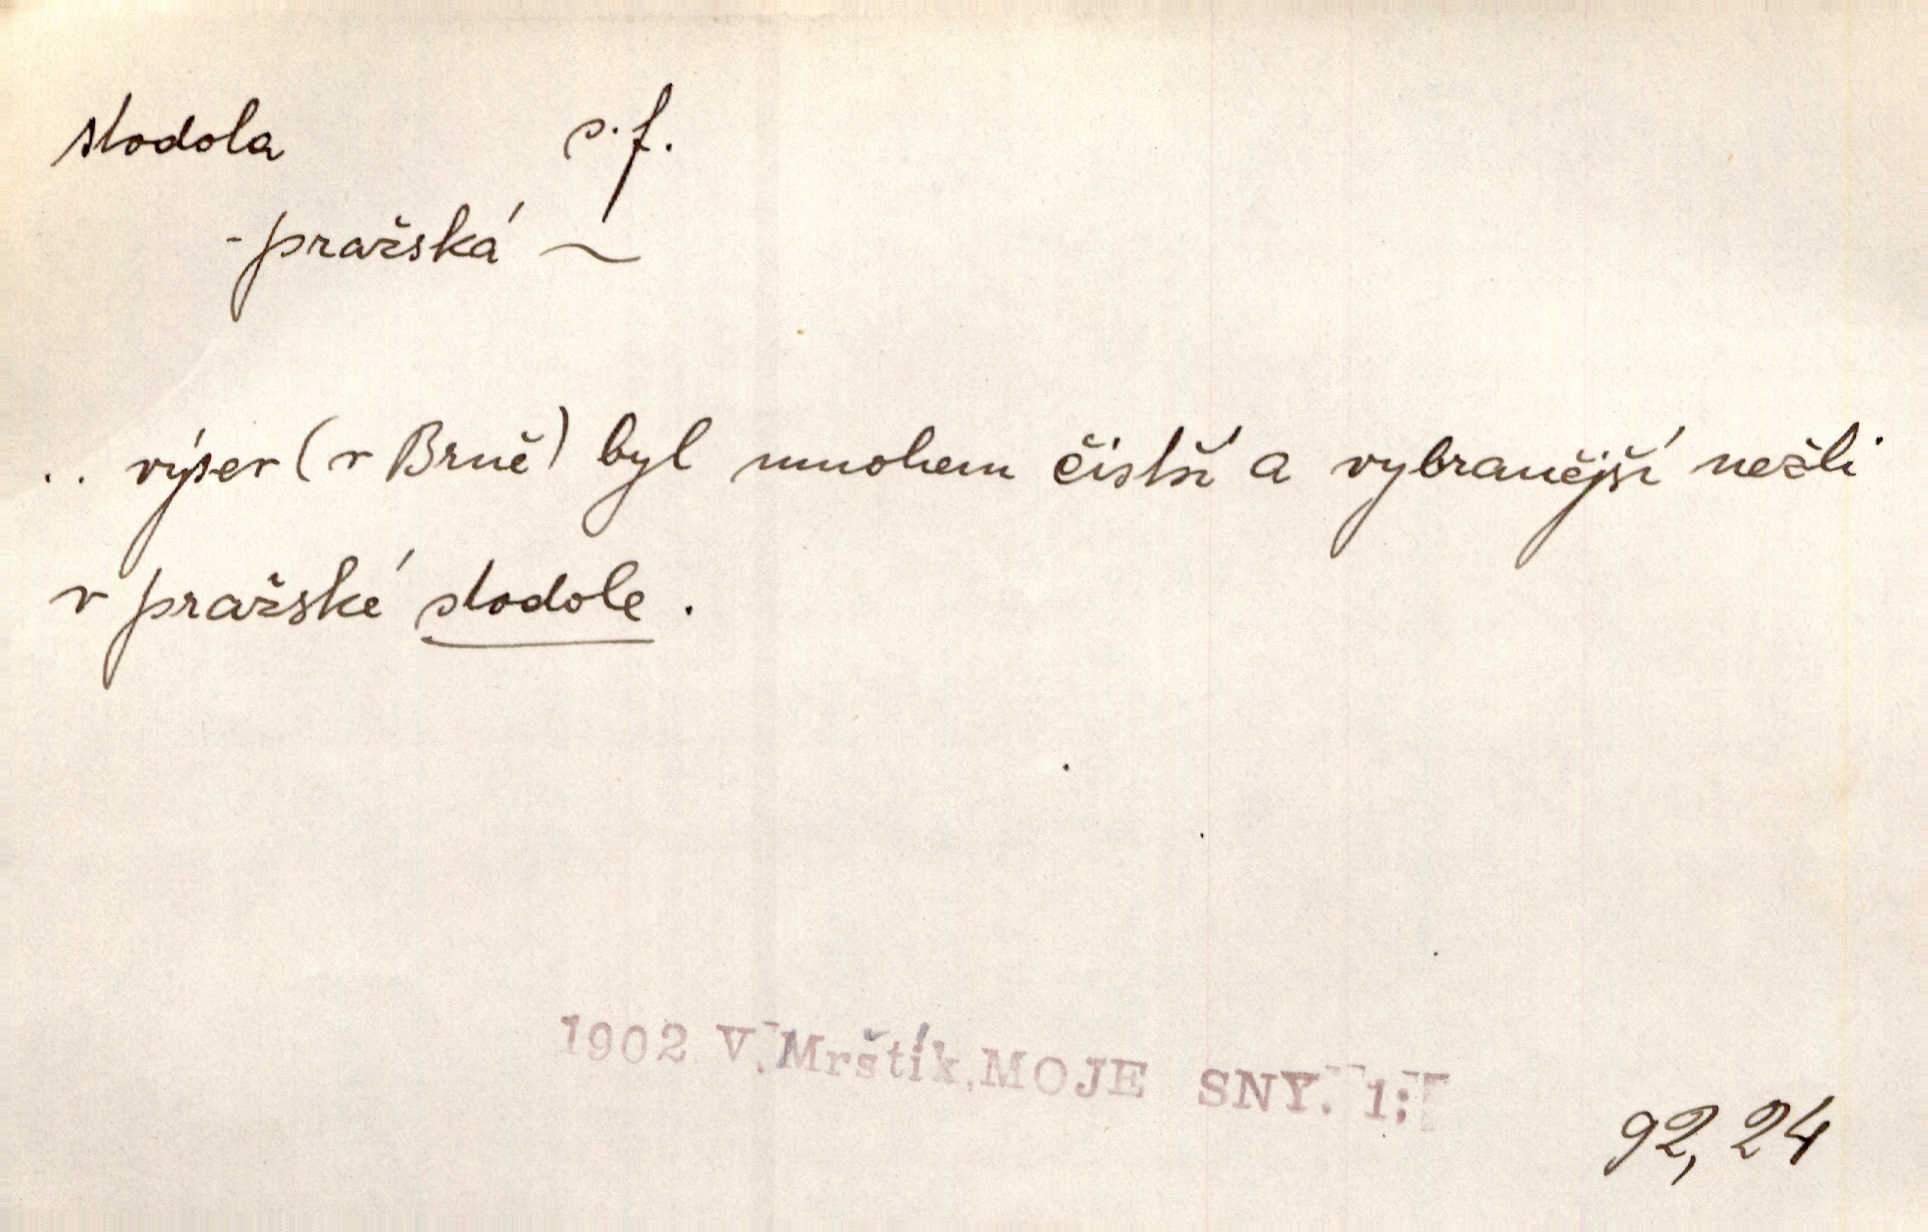 stodola s. f.
- pražská ~
.. výsev (v Brně) byl mnohem čistší a vybranější nežli
v pražské stodole.
1902 V. Mrštík. MOJE SNY. 1:
92, 24